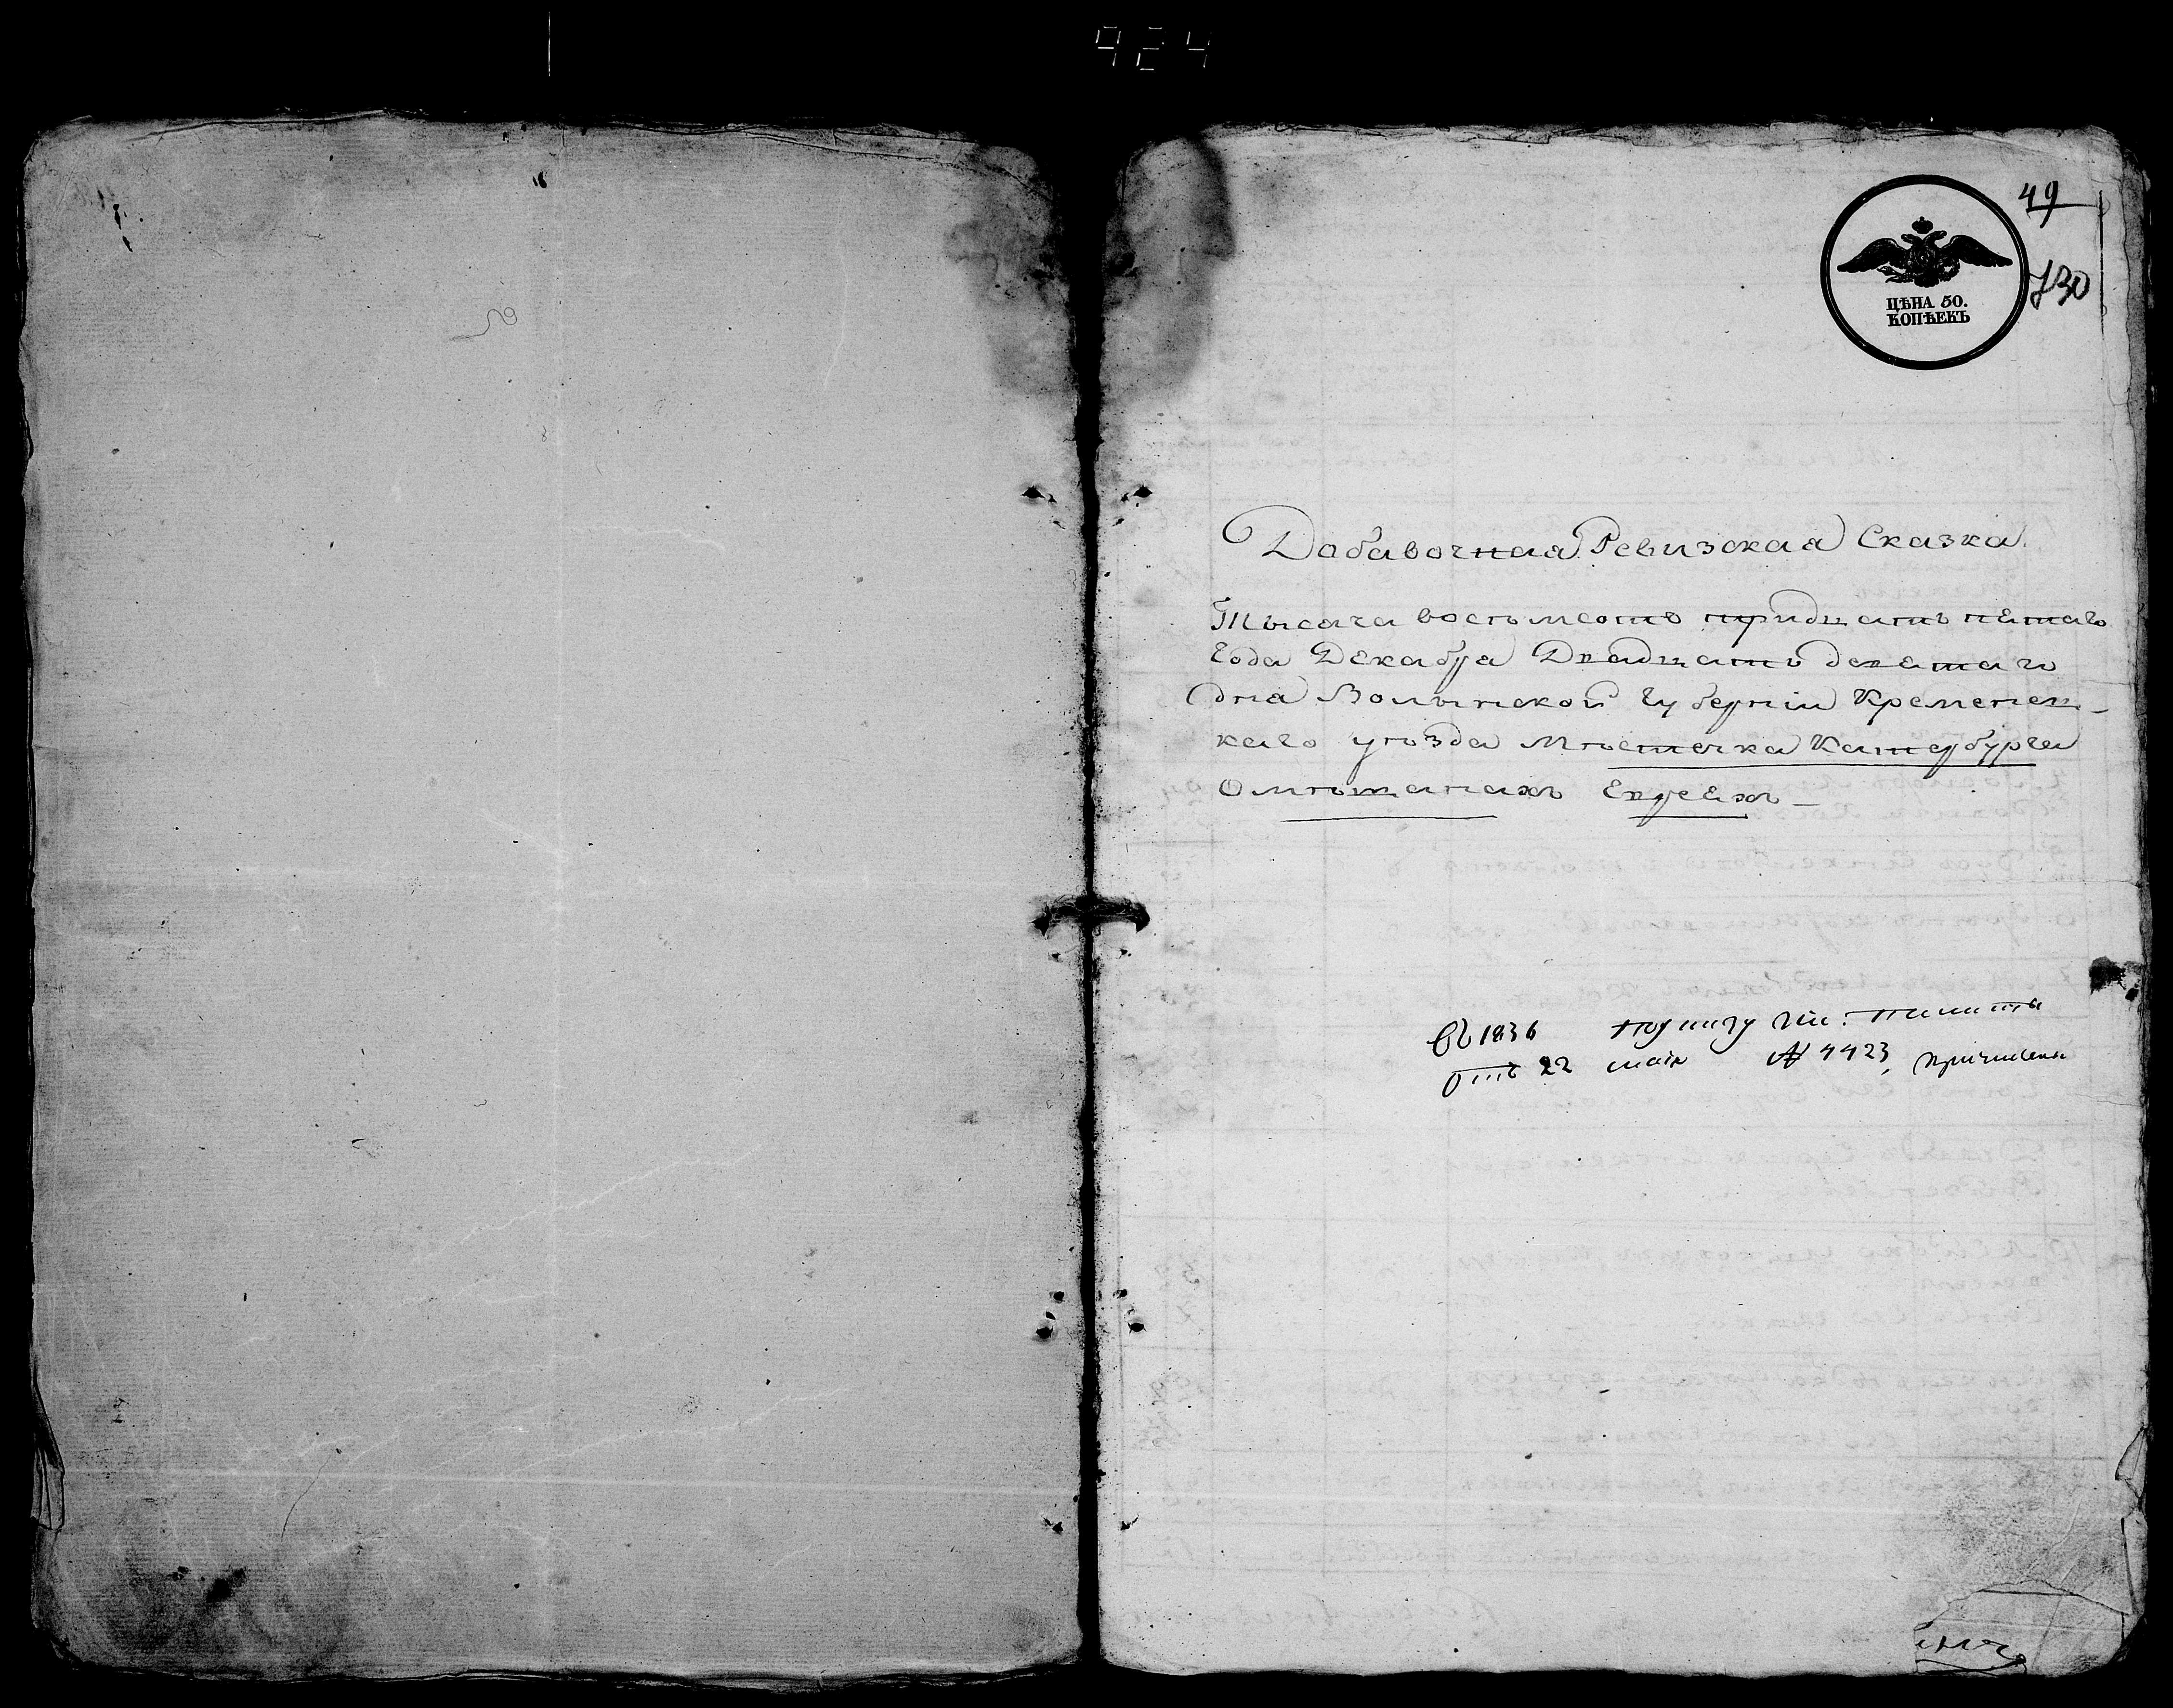 924
49
730
ЦѢНА 50.
КОПѢЕКЪ
Добавочная Ревизская Сказка.
Тысяча восѣмсотъ тридцать пятаго
года Декабря Двадцать девятаго
дня Волынской Губерніи Кременец-
каго уѣзда Мѣстечка Катербурга
О мѣщанахъ Евреяхъ —
Въ 1836 По указу Каз: Палаты
Отъ 22 маія № 4423, причислены